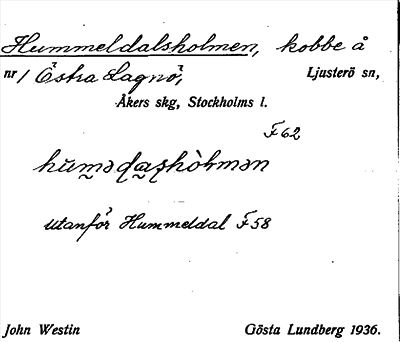 Hummeldalsholmen, kobbe å
nr 1 Östra Lagnö, Ljusterö sn,
Åkers skg, Stockholms l.
F62
utanför Hummeldal F58
John Westin Gösta Lundberg 1936.